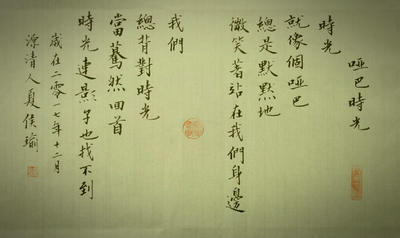 啞巴時光
時光
就像個啞巴
總是默默地
微笑著站在我們身邊
我們
總背對時光
當驀然回首
時光連影子也找不到
歲在二零一七年十二月
源清人夏侯瑜